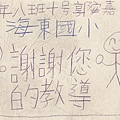 年八班十号郭海嘉
海東國小
謝謝您
的教導